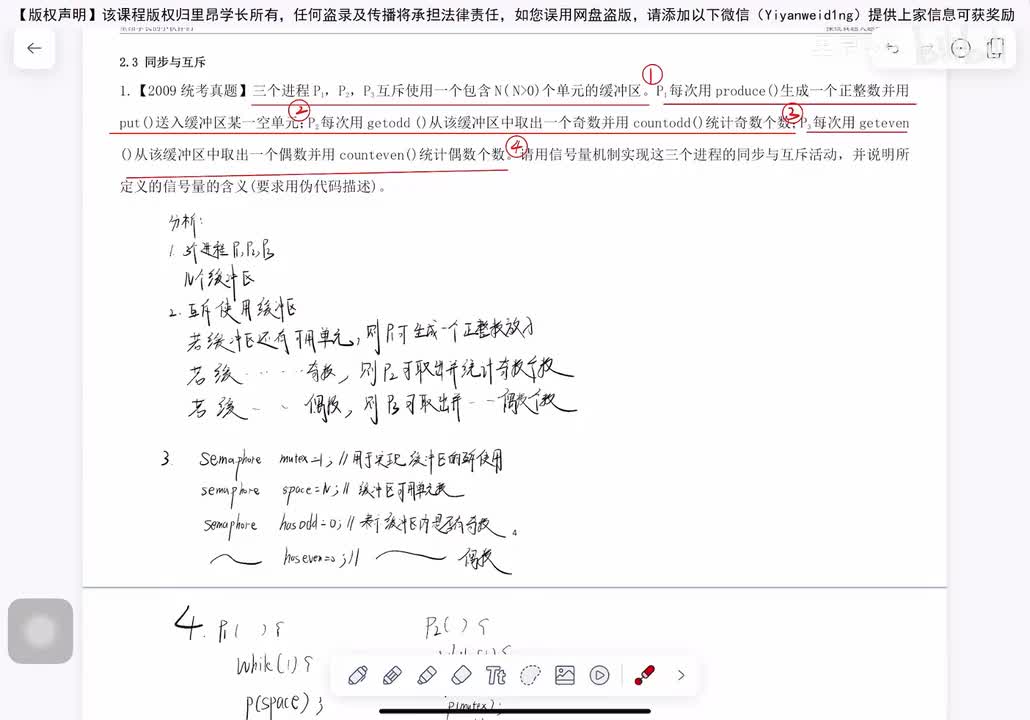 【版权声明】该课程版权归里昂学长所有，任何盗录及传播将承担法律责任，如您误用网盘盗版，请添加以下微信（Yiyanweid1ng）提供上家信息可获奖励
2.3 同步与互斥
1.【2009 统考真题】三个进程 P₁，P₂，P₃互斥使用一个包含 N(N>0)个单元的缓冲区。P₁每次用 produce()生成一个正整数并用
①
put()送入缓冲区某一空单元；P₂每次用 getodd()从该缓冲区中取出一个奇数并用 countodd()统计奇数个数；P₃每次用 geteven
② ③
()从该缓冲区中取出一个偶数并用 counteven()统计偶数个数。请用信号量机制实现这三个进程的同步与互斥活动，并说明所
④
定义的信号量的含义(要求用伪代码描述)。
分析：
1. 3个进程 P₁,P₂,P₃
N个缓冲区
2. 互斥使用缓冲区
若缓冲区还有可用单元，则P₁可生成一个正整数放入
若缓 ····· 奇数，则P₂可取出并统计奇数个数
若缓 ·· 偶数，则P₃可取出并 ·· 偶数个数
3. Semaphore mutex=1; //用于实现缓冲区的互斥使用
semaphore space=N; // 缓冲区可用单元数
semaphore hasodd=0; // 表示缓冲区内是否有奇数
haseven=0; // 偶数
4. P₁( ) { P₂( ) {
while(1) {
p(space); p(mutex);
Tt